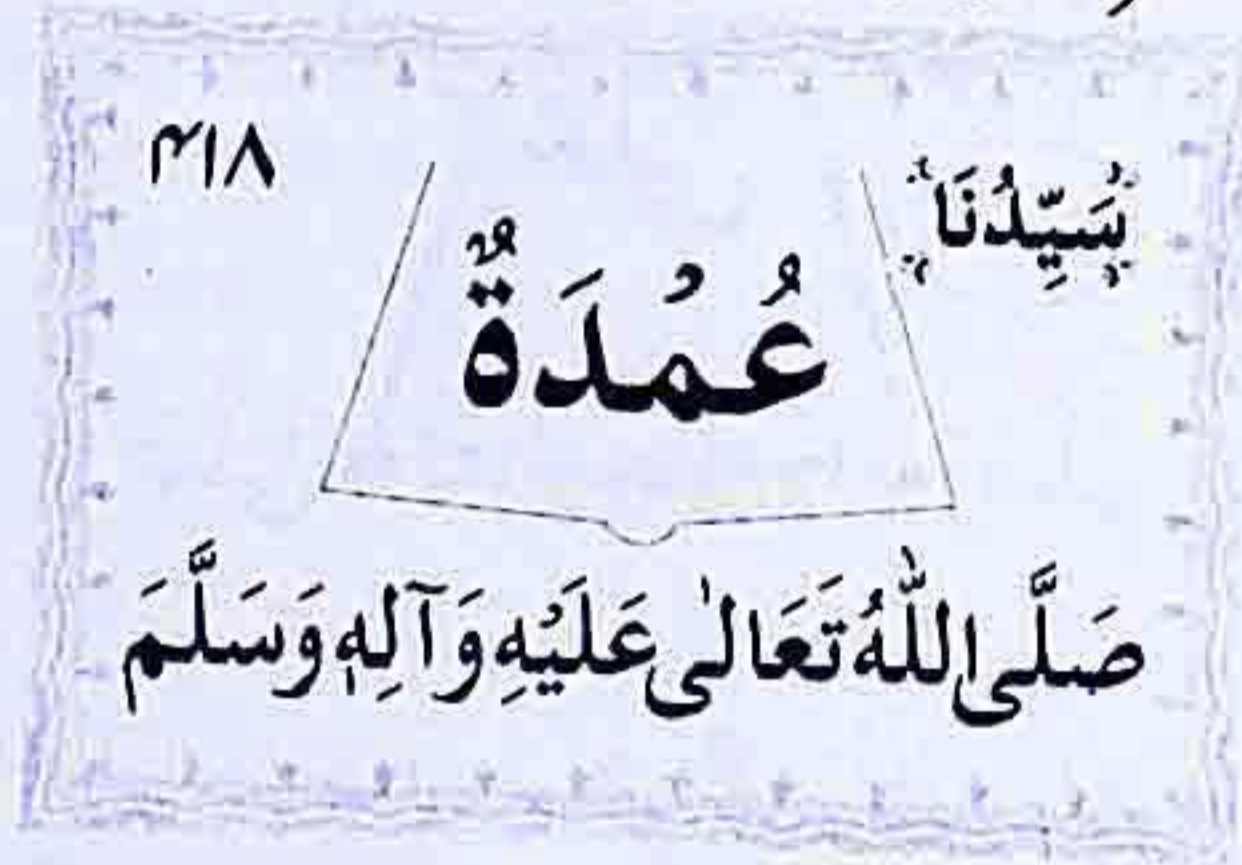 سَيِّدُنَا ۴۱۸
عُمْدَةٌ
صَلَّى اللّٰهُ تَعَالٰى عَلَيْهِ وَآلِهٖ وَسَلَّمَ